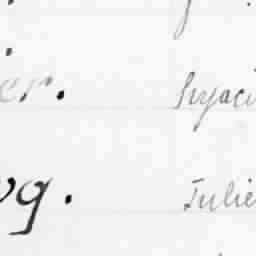 er. hyaci
vg. Tulie